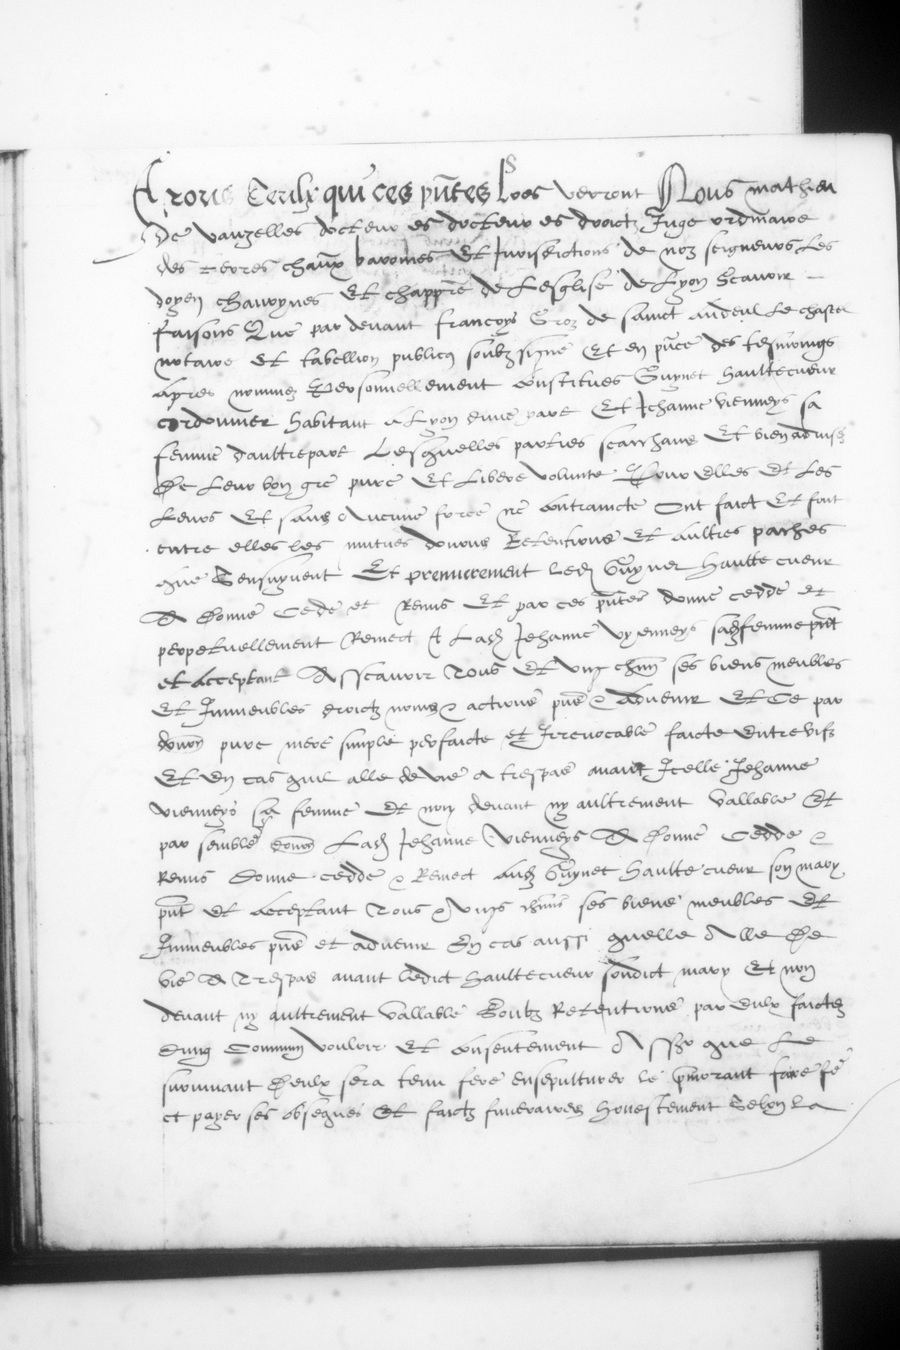 A tous Ceulx qui ces pntes Lres verront Nous mathieu
De vauzelles docteur es docteur es droictz Juge ordinaire
des terres chaulx baronies Et Jurisdictions de noz seigneurs Les
doyen chanoynes Et chappre de Lesglise de Lyon Scavoir
faisons Que par devant francoys Groz de sainct andeul Le chastel
notaire et tabellion publicq soubzsigne Et en pnce des tesmoings
Apres nommez Personnellement constitues Guynet haultecueur
cordonnier habitant a Lyon dune part Et Jehanne vienneys sa
femme daultrepart Lesquelles parties scaichans Et bien advises
De Leur bon gre pure Et Libere volunte Pour elles Et Les
Leurs Et sans Aucune force ne contraincte Ont faict Et font
entre elles les mutues donons Retentions Et Aultres paches
que Sensuyvent Et premierement Led Guynet haultecueur
A Donne Cede et Remis Et par ces pntes donne cedde et
perpetuellement Remect A Lad Jehanne vyenneys sad femme pnt
et acceptant Asscavoir Tous Et ungchun ses biens meubles
Et Immeubles droictz noms & actions pns & advenir Et Ce par
donon pure mere simple perfaicte et Irrevocable faicte Entre vifz
Et En cas quil alle de vie a trespas avant Icelle Jehanne
vienneys sa femme Et non devant ny aultrement vallable Et
par semble donon Lad Jehanne Vienneys A Donne Cedde &
Remis Donne cedde & Remect Aud Guynet haulte cueur son mary
pnt et acceptant Tous & Ungchuns ses biens meubles Et
Immeubles pns et advenir En cas aussi quelle Alle De
vie A Trespas avant ledict haultecueur sondict mary Et non
devant ny aultrement vallable Soubz Retentions par Eulx faictes
Dung Commun vouloir Et consentement Assr que Le
survivant Deulx sera tenu fere ensepulturer le pmorant faire fe
et payer ses obseques Et faictz funeraires honestement Selon La